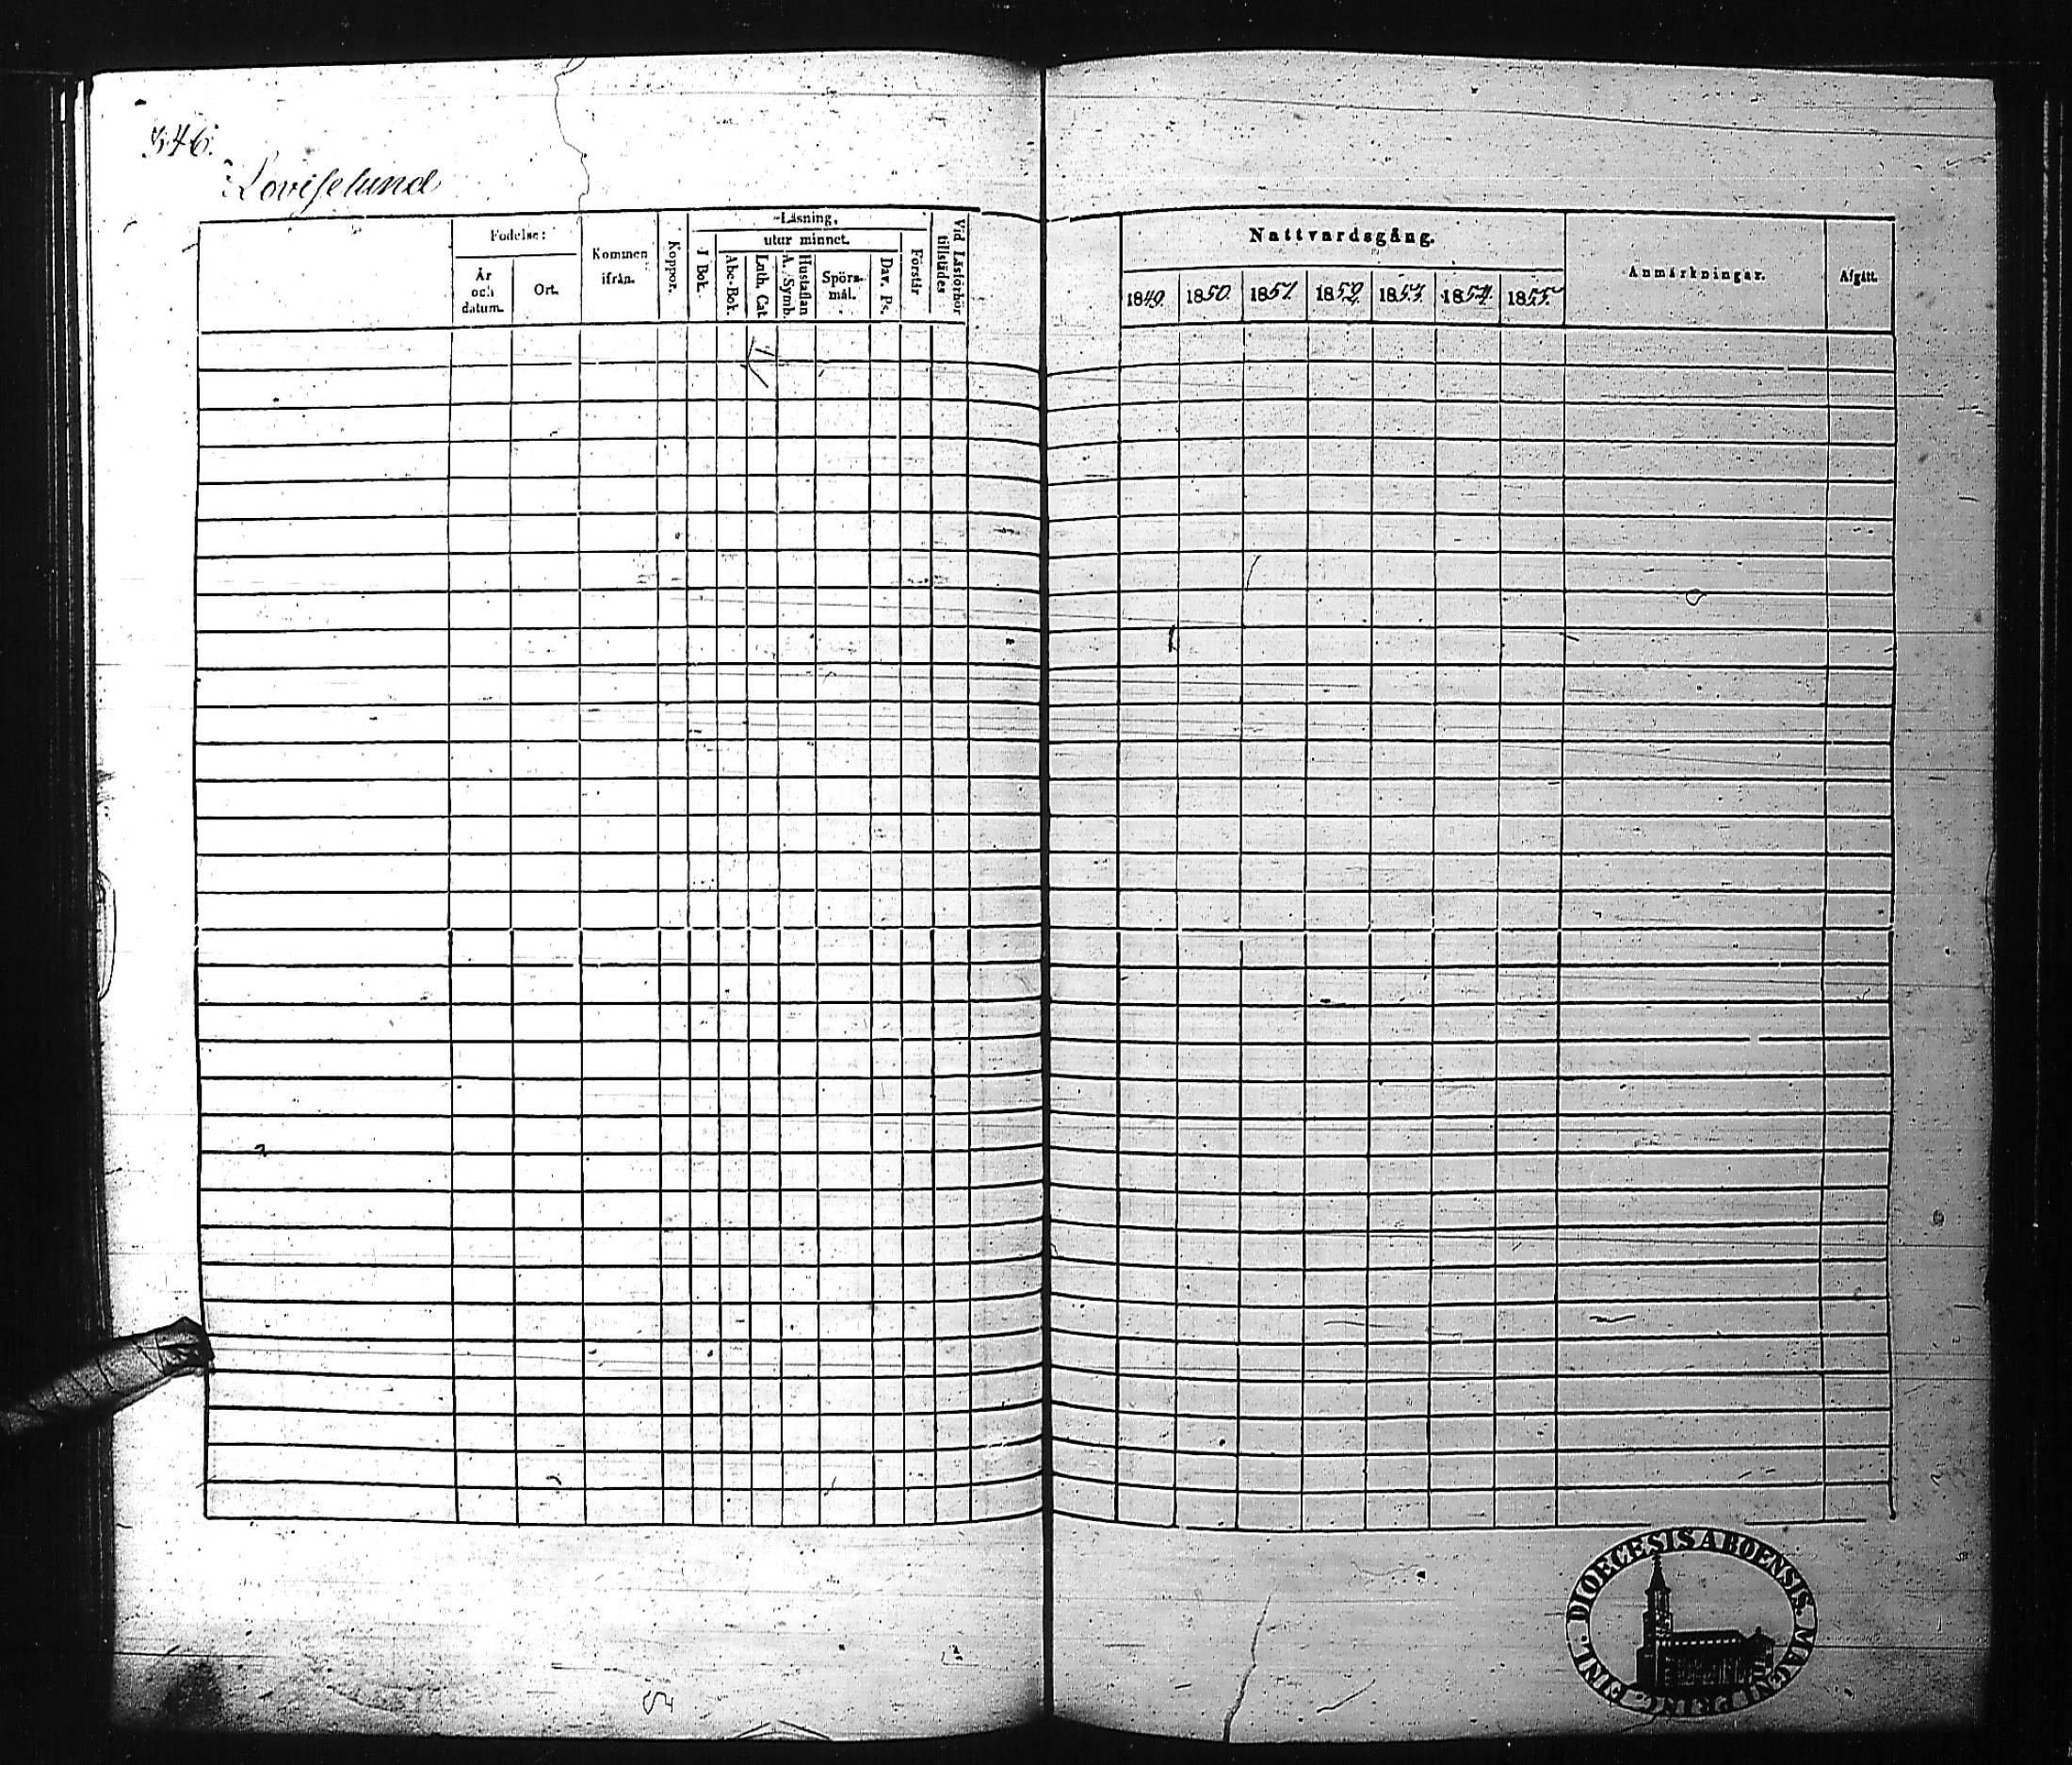 546.
Loviselund
Födelse:
År och datum.
Ort.
Kommen ifrån.
Koppor.
Läsning.
I Bok.
utur minnet.
Abc-Bok.
Luth. Cat.
A. Symb.
Hustaflan
Spörsmål.
Dav. Ps.
Förstår
Vid Läsförhör tillstädes
Nattvardsgång.
1849.
1850.
1851.
1852.
1853.
1854.
1855.
Anmärkningar.
Afgått.
DIOECESIS ABOENSIS. MAGNI PRINC. FINL.